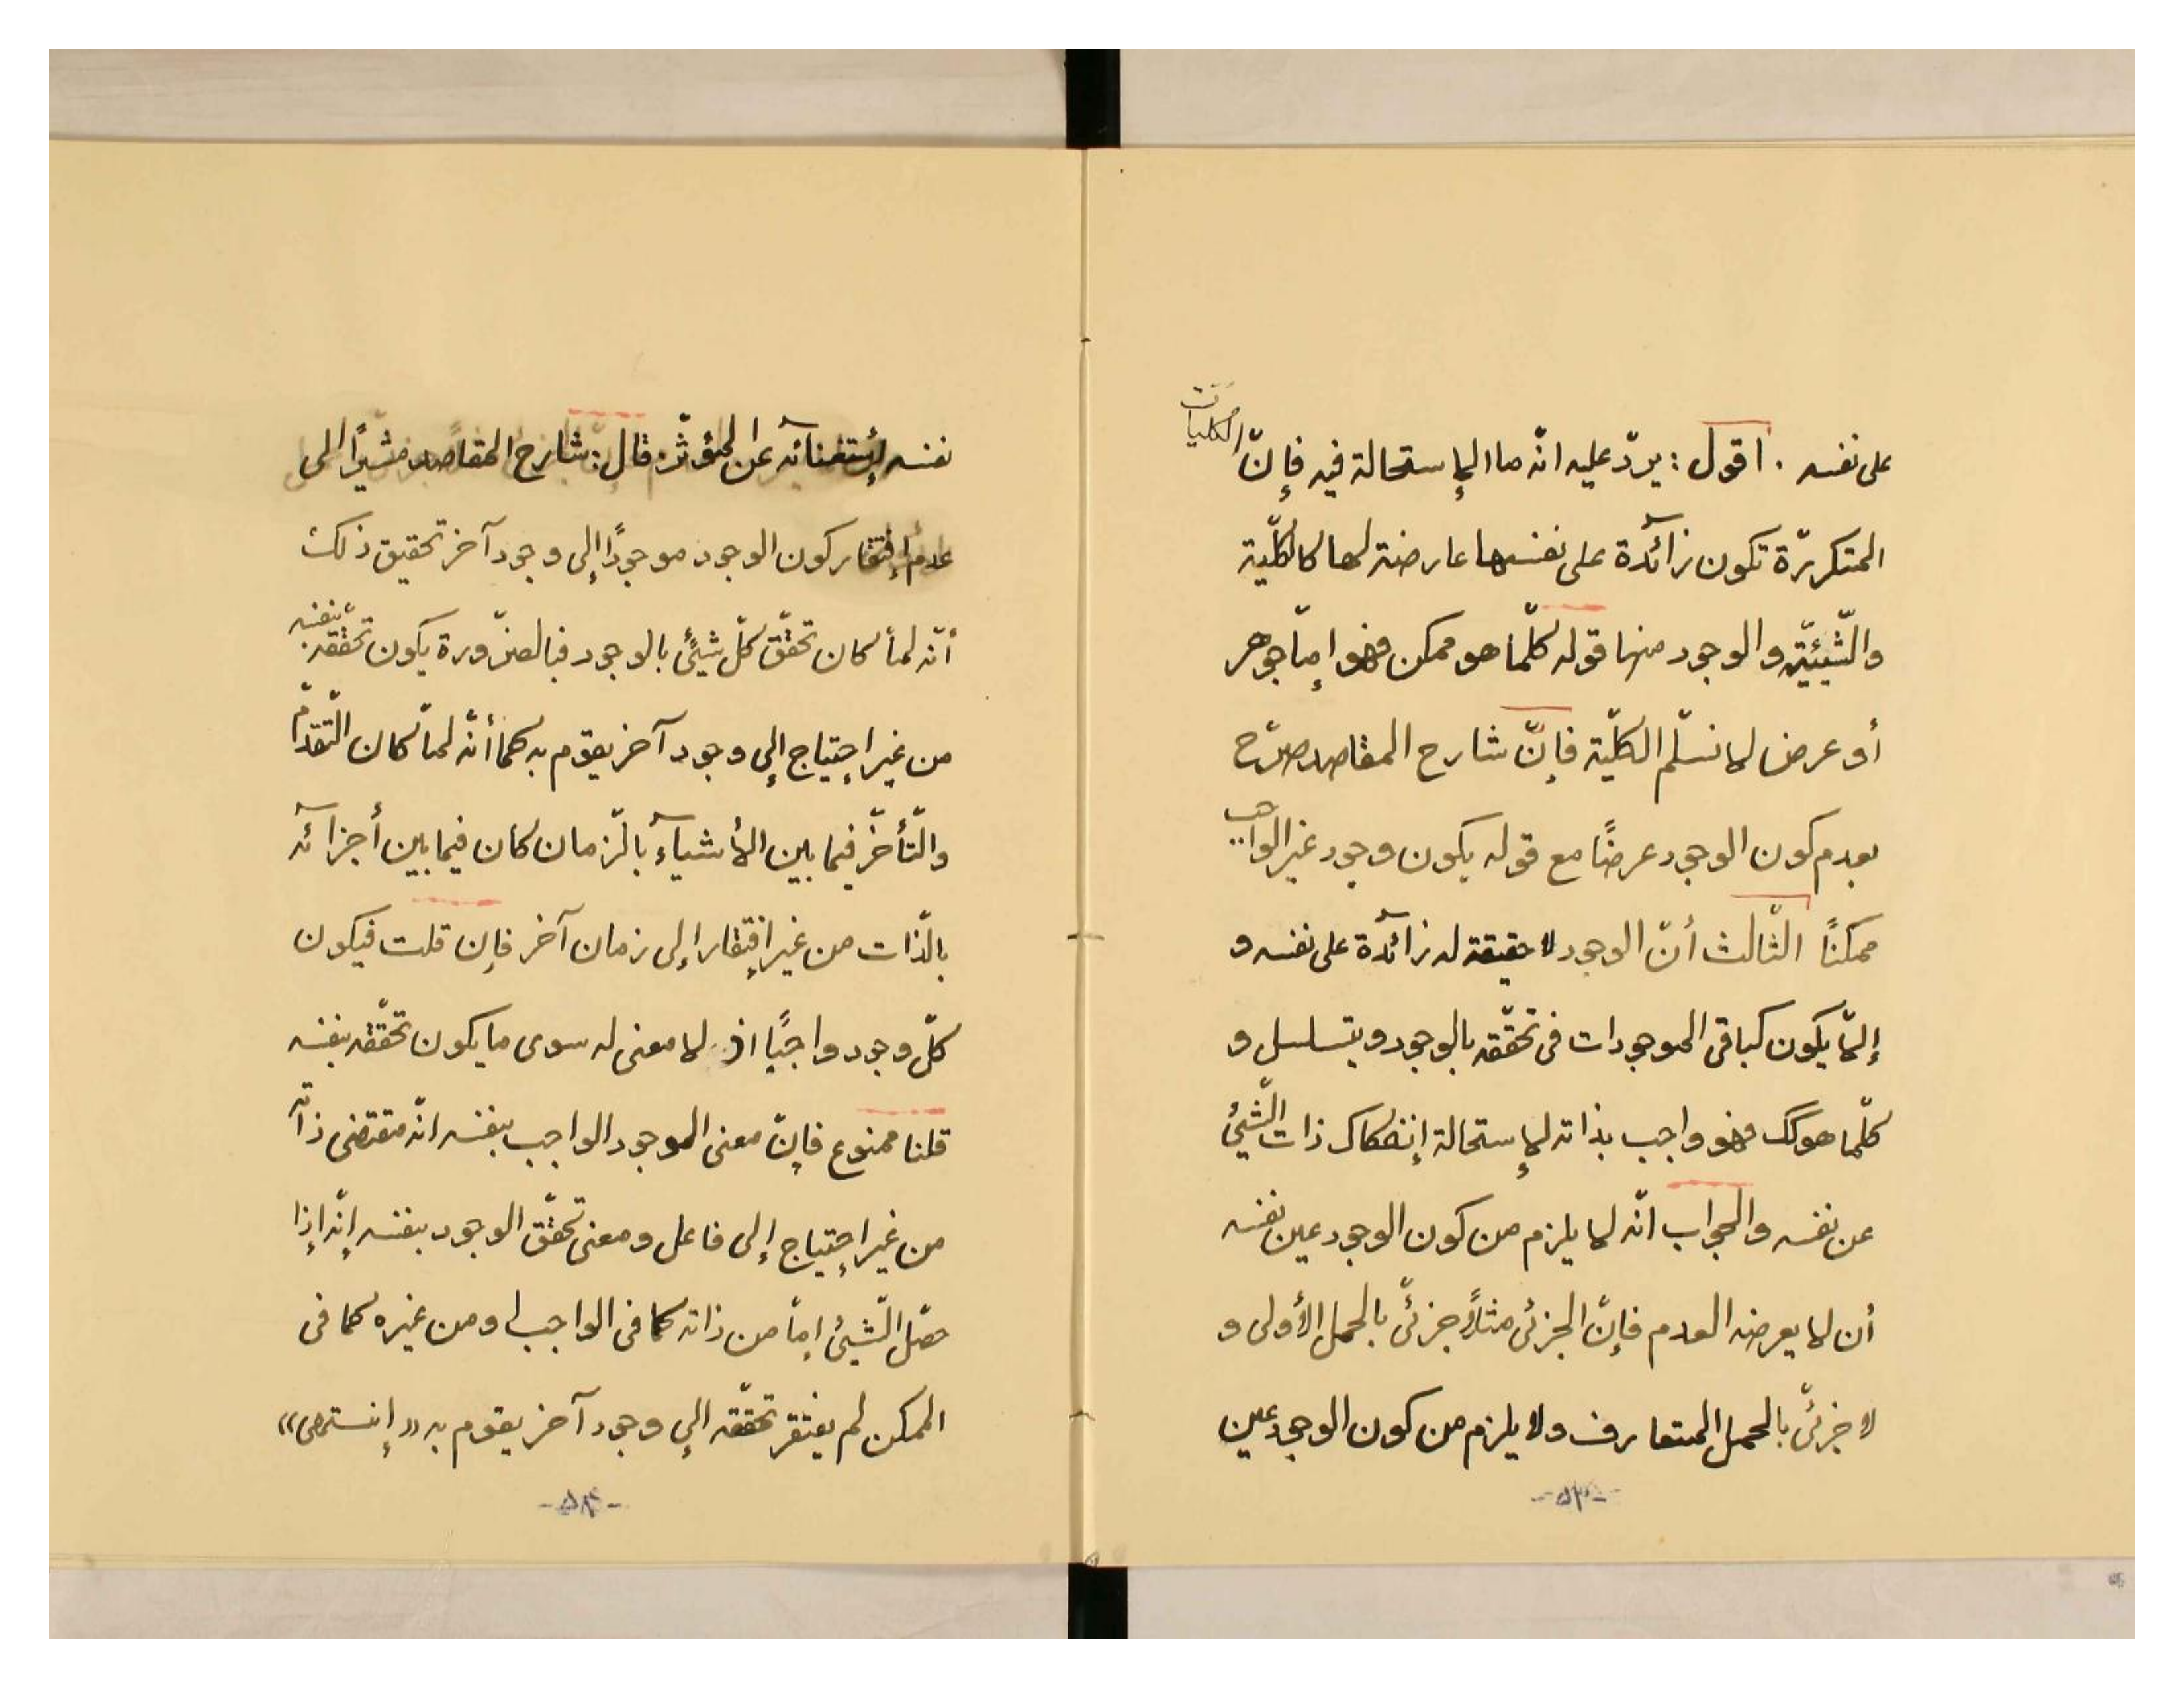 على نفسه . اقول : يردّ عليه انّه ما الإستحالة فيه فإنّ الكليات
المتكررّة تكون زآئدة على نفسها عارضة لها كالكلّية
والشّيئيّة والوجود منها قوله كلّما هو ممكن فهو امّا جوهر
أو عرض لا نسلّم الكلّية فإنّ شارح المقاصد صرّح
بعدم كون الوجود عرضًا مع قوله بكون وجود غير الواجب
ممكنًا الثّالث أنّ الوجود لا حقيقة له زآئدة على نفسه و
إلاّ يكون كباقى الموجودات فى تحقّقه بالوجود ويتسلسل و
كلّما هو كك فهو واجب بذاته لإستحالة إنفكاك ذات الشّيئ
عن نفسه والجواب انّه لا يلزم من كون الوجود عين نفسه
أن لا يعرضه العدم فإنّ الجزئى مثلاً جزئىّ بالحمل الأولى و
لا جزئىّ بالحمل المتعارف ولا يلزم من كون الوجود عين
-۵۳-
نفسه إستغنآئه عن المؤثّر قال : شارح المقاصد مشيرًا الى
عدم إفتقار كون الوجود موجودًا إلى وجود آخر تحقيق ذلك
أنّه لمّا كان تحقّق كلّ شيئ بالوجود فبالضّرورة يكون تحقّقه بنفسه
من غير إحتياج إلى وجود آخر يقوم به كما أنّه لمّا كان التّقدّم
والتّأخّر فيما بين الأشيآء بالزّمان كان فيما بين أجزآئه
بالذّات من غير إفتقار إلى زمان آخر فإن قلت فيكون
كلّ وجود واجبًا اذ لا معنى له سوى ما يكون تحقّقه بنفسه
قلنا ممنوع فإنّ معنى الوجود الواجب بنفسه انّه مقتضى ذاته
من غير إحتياج إلى فاعل ومعنى تحقّق الوجود بنفسه إنّه إذا
حصّل الشّيئ إمّا من ذاته كما فى الواجب او من غيره كما فى
الممكن لم يفتقر تحقّقه إلى وجود آخر يقوم به «إنتهى»
-۵۴-